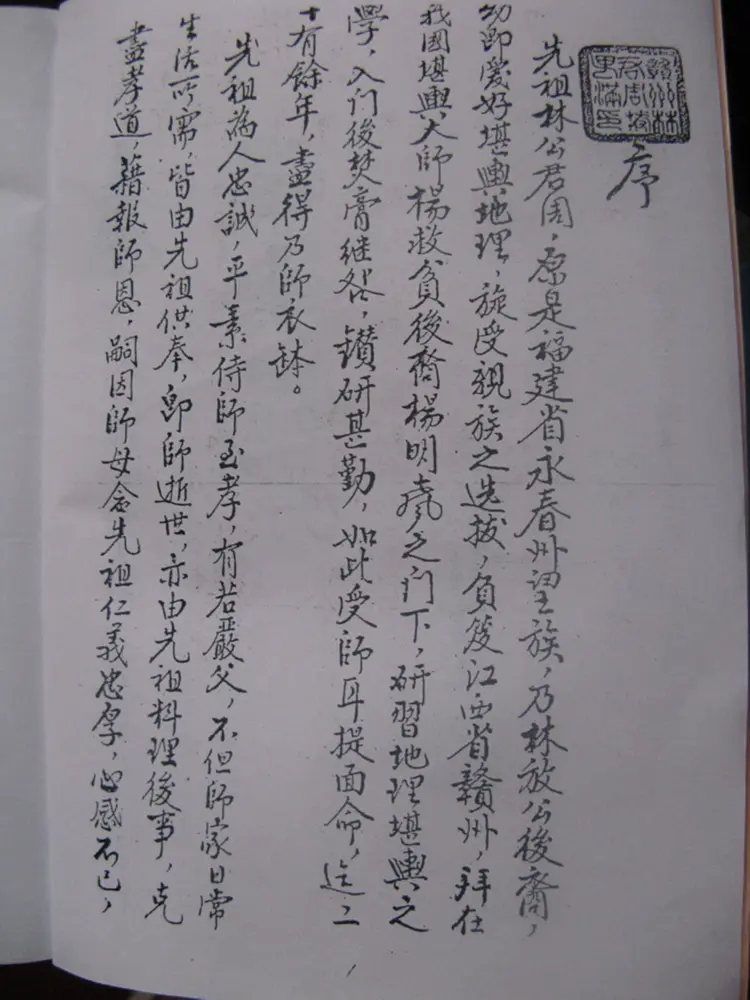 序
先祖林公君周，原是福建省永春州望族，乃林放公後裔，
幼即爱好堪輿地理，旋受親族之选拔，負笈江西省贛州，拜在
我國堪輿大師楊救貧後裔楊明亮之门下，研習地理堪輿之
學，入门後焚膏继晷，鑽研甚勤，如此受師耳提面命，迄二
十有餘年，盡得乃師衣缽。
先祖為人忠誠，平素侍師至孝，有若嚴父，不但師家日常
生活所需，皆由先祖供奉，即師逝世，亦由先祖料理後事，克
盡孝道，藉報師恩，嗣因師母念先祖仁義忠厚，心感不已，
1